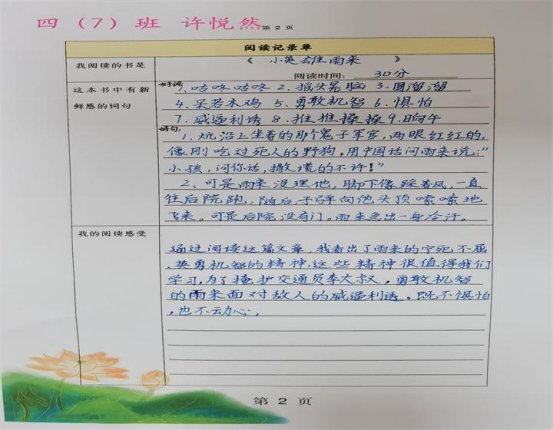 四（7）班 许悦然 第 2 页
阅读记录单
我阅读的书是
《小英雄雨来》
阅读时间：30分
这本书中有新
鲜感的词句
好词：
1、咕咚咕咚 2、摇头晃脑 3、圆溜溜
4、呆若木鸡 5、勇敢机智 6、惧怕
7、威逼利诱 8、推推搡搡 9、晌午
好句：
1、炕沿上坐着的那个鬼子军官，两眼红红的，
像刚吃过死人的野狗，用中国话问雨来说：“
小孩，问你话，撒谎的不许！”
2、可是雨来没理他，脚下像踩着风，一直
往后院跑，随后子弹向他头顶嗖嗖地
飞来。可是后院没有门。雨来急出一身冷汗。
我的阅读感受
通过阅读这篇文章，我看出了雨来的宁死不屈、
英勇机智的精神，这些精神很值得我们
学习，为了掩护交通员李大叔，勇敢机智
的雨来面对敌人的威逼利诱。既不惧怕
，也不动心。
第 2 页